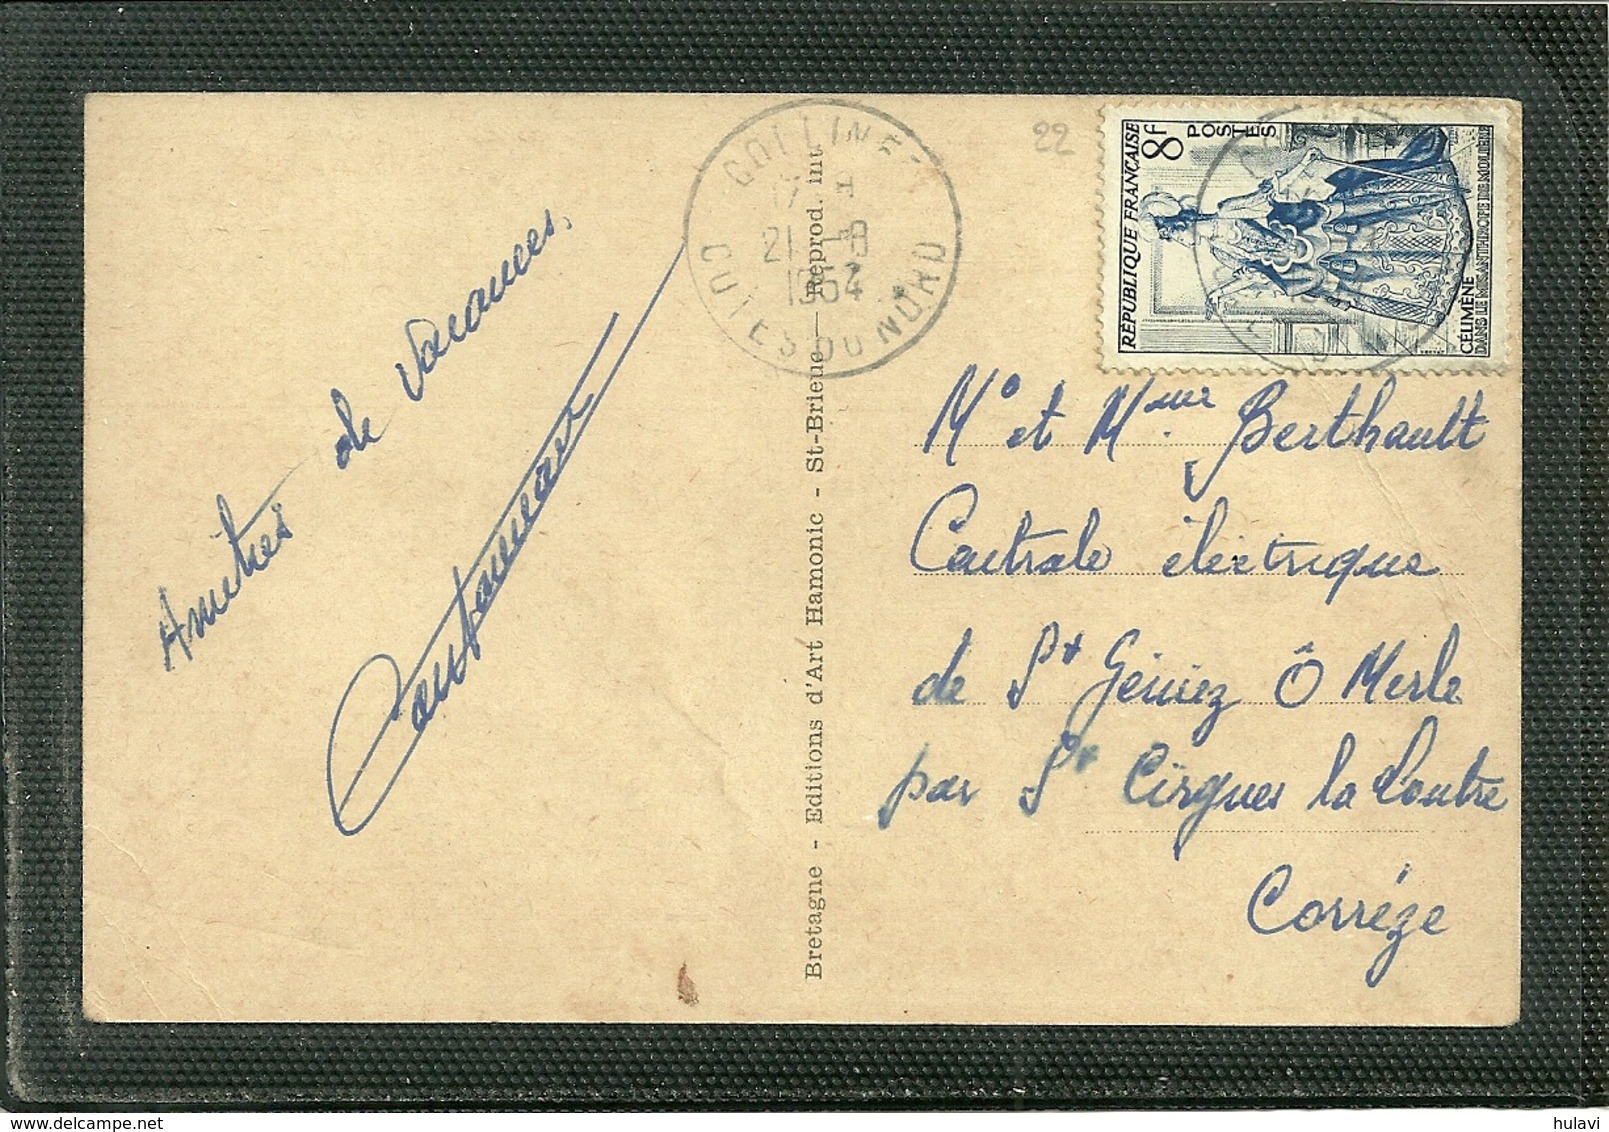 Amitiés de vacances.
Bretagne - Editions d'Art Hamonic - St-Brieuc — Reprod. int
COLLINE
17 H
21 -8
1954
COTES DU NORD
22
RÉPUBLIQUE FRANÇAISE
8F
POSTES
CÉLIMÈNE
DANS LE MISANTHROPE DE MOLIÈRE
Mr et Mme Berthault
Centrale électrique
de St Géniez Ô Merle
par St Cirgues la Loutre
Corrèze
hulavi